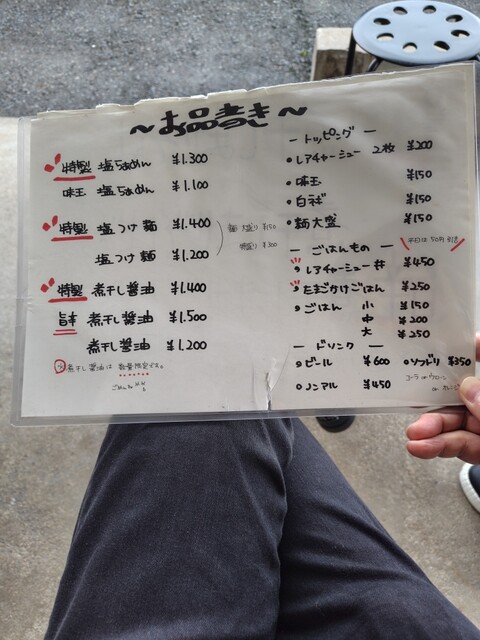 ～お品書き～
特製 塩らぁめん ¥1.300
味玉 塩らぁめん ¥1.100
特製 塩つけ麺 ¥1.400
塩つけ麺 ¥1.200
麺 大盛り ¥150
特盛り ¥300
特製 煮干し醤油 ¥1.400
旨辛 煮干し醤油 ¥1.500
煮干し醤油 ¥1.200
煮干し醤油は 数量限定です。
ー トッピング ー
レアチャーシュー 2枚 ¥200
味玉 ¥150
白ネギ ¥150
麺大盛 ¥150
ー ごはんもの ー
平日は50円引き
レアチャーシュー丼 ¥450
たまごかけごはん ¥250
ごはん 小 ¥150
中 ¥200
大 ¥250
ー ドリンク ー
ビール ¥600 ソフドリ ¥350
ノンアル ¥450
コーラ or ウーロン
or オレンジ